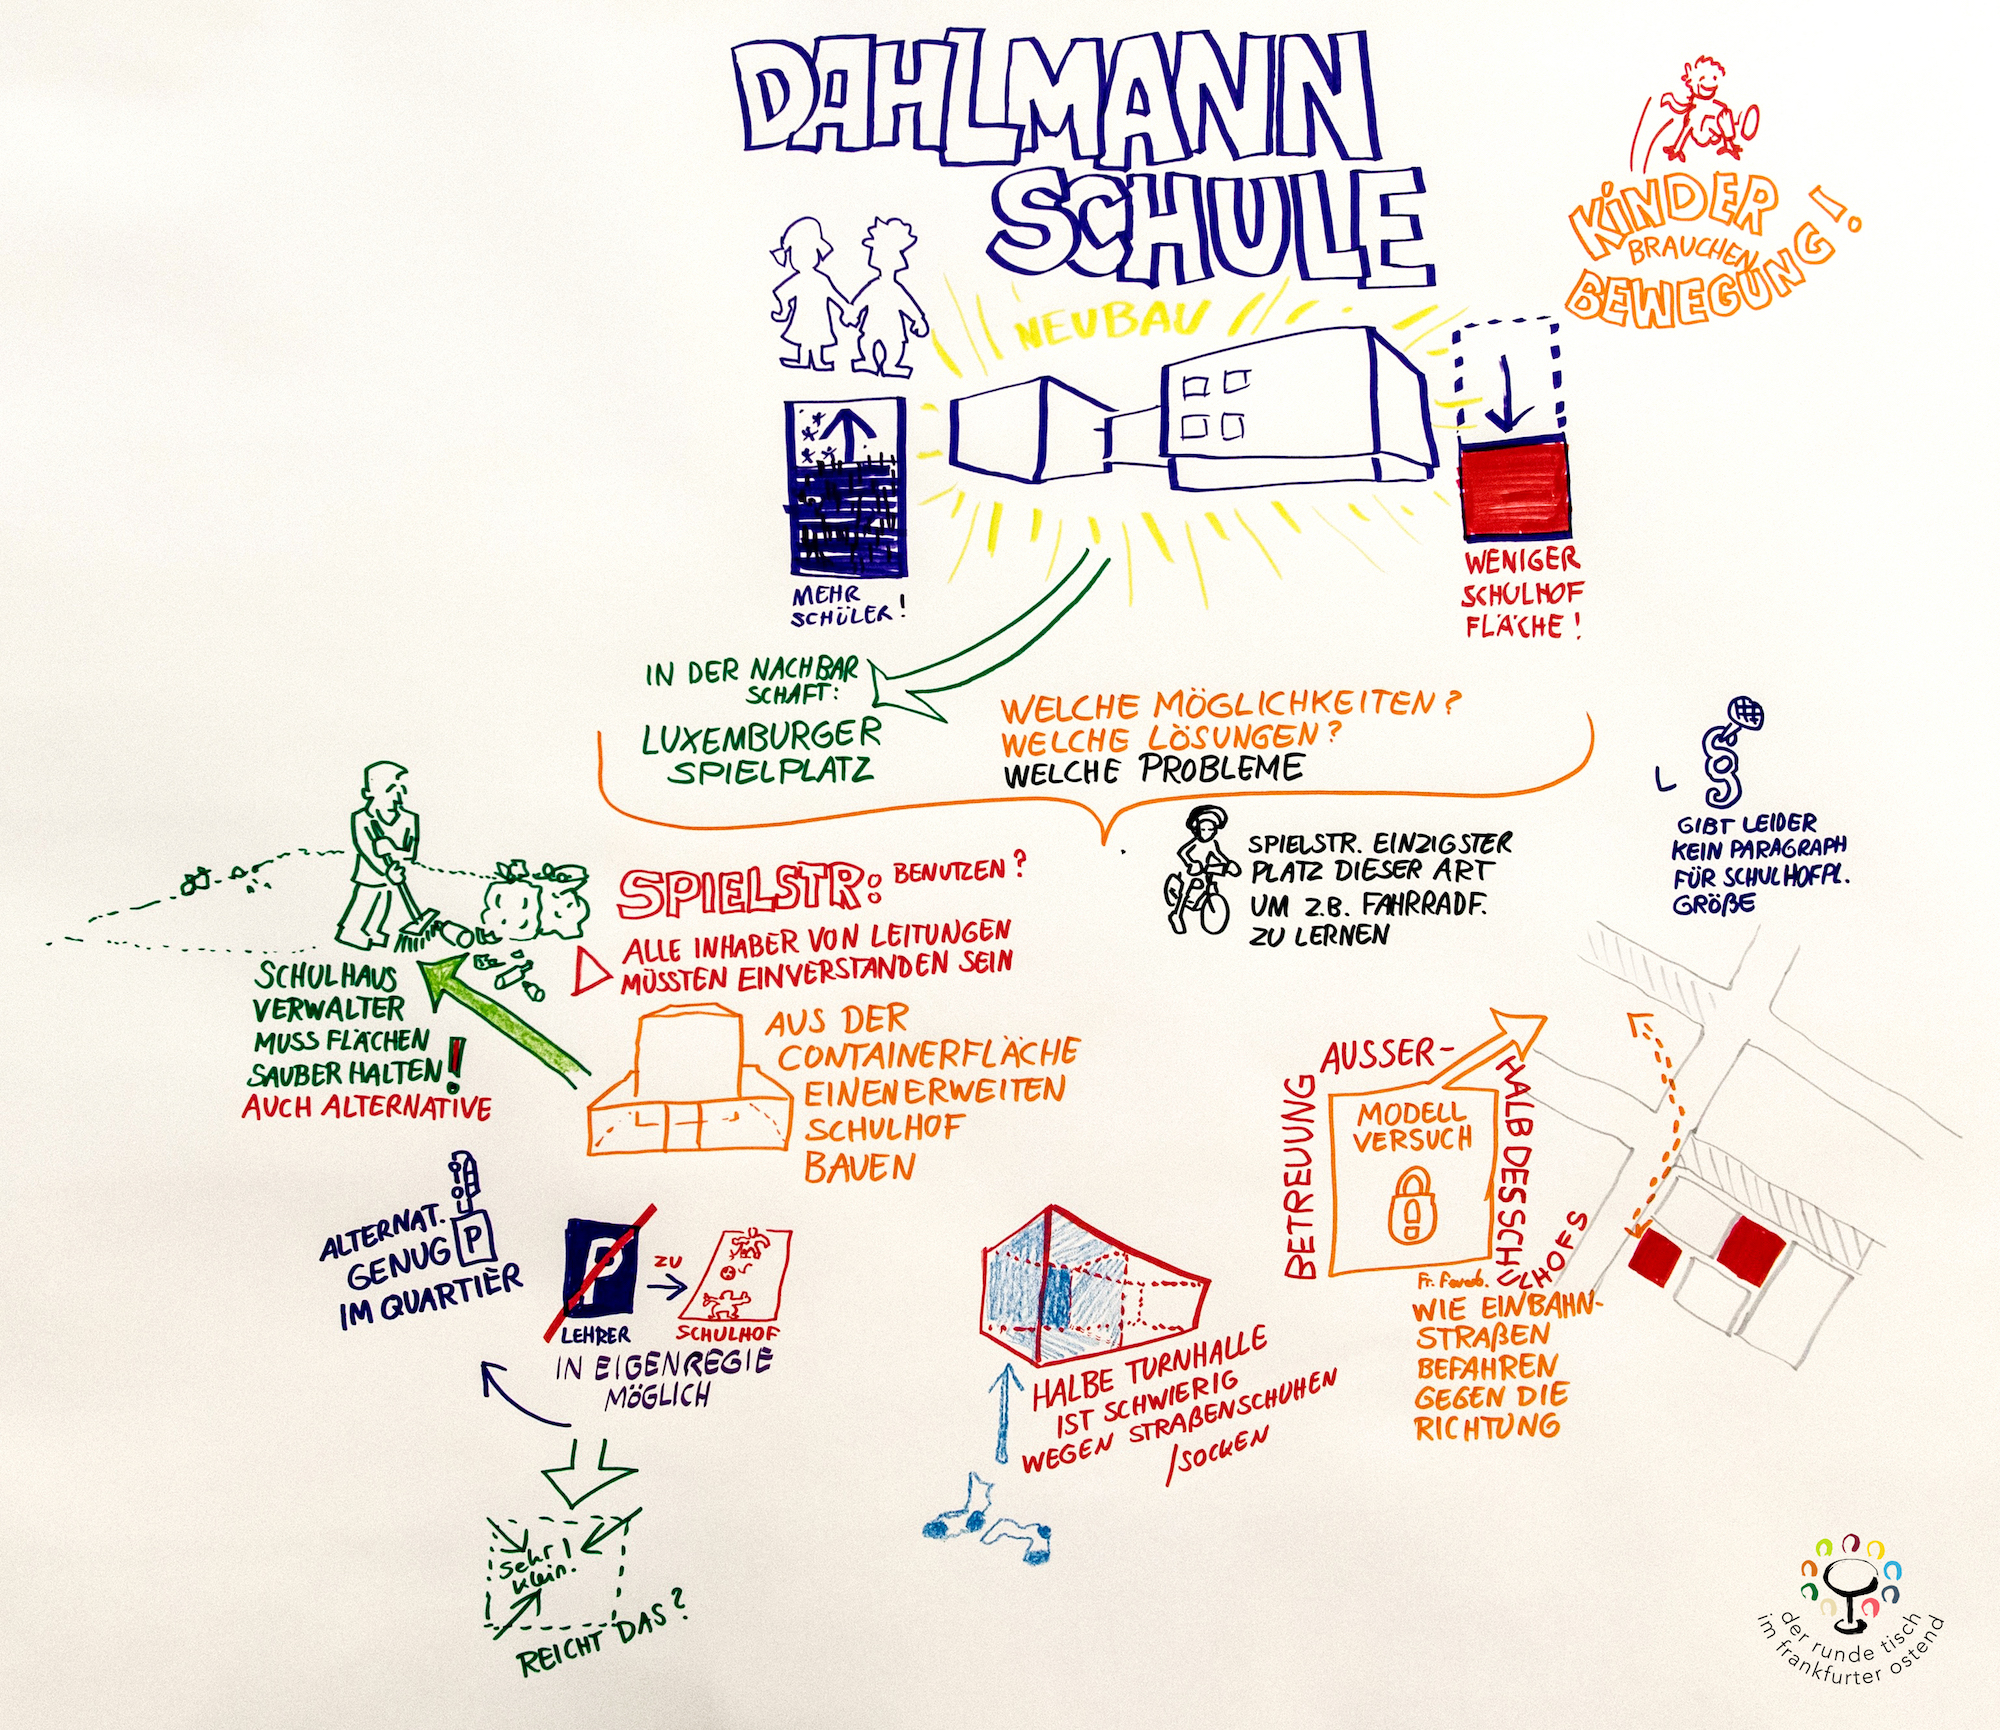 DAHLMANN
SCHULE
KINDER
BRAUCHEN
BEWEGUNG!
NEUBAU
MEHR
SCHÜLER!
WENIGER
SCHULHOF
FLÄCHE!
IN DER NACHBAR
SCHAFT:
LUXEMBURGER
SPIELPLATZ
WELCHE MÖGLICHKEITEN?
WELCHE LÖSUNGEN?
WELCHE PROBLEME
§
GIBT LEIDER
KEIN PARAGRAPH
FÜR SCHULHOFPL.
GRÖẞE
SPIELSTR: BENUTZEN?
ALLE INHABER VON LEITUNGEN
MÜSSTEN EINVERSTANDEN SEIN
SPIELSTR. EINZIGSTER
PLATZ DIESER ART
UM Z.B. FAHRRADF.
ZU LERNEN
SCHULHAUS
VERWALTER
MUSS FLÄCHEN
SAUBER HALTEN!
AUCH ALTERNATIVE
AUS DER
CONTAINERFLÄCHE
EINEN ERWEITEN
SCHULHOF
BAUEN
BETREUUNG
AUSSER-
HALB DES SCHULHOFS
MODELL
VERSUCH
WIE EINBAHN-
STRAẞEN
BEFAHREN
GEGEN DIE
RICHTUNG
ALTERNAT.
GENUG P
IM QUARTIER
P
ZU
LEHRER
SCHULHOF
IN EIGENREGIE
MÖGLICH
HALBE TURNHALLE
IST SCHWIERIG
WEGEN STRAẞENSCHUHEN
/SOCKEN
sehr
klein!
REICHT DAS?
der runde tisch
im frankfurter ostend